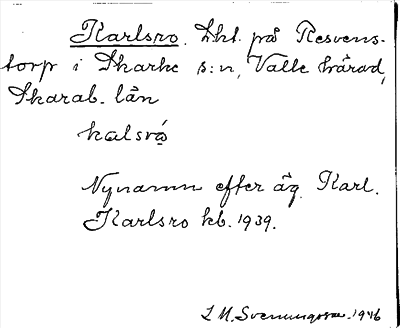 Karlsro. Lht. på Resvens-
torp i Skarke s:n, Valle härad,
Skarab. län
kalsvó
Nynamn efter äg. Karl.
Karlsro kb. 1939.
L M. Svenungsson. 1946